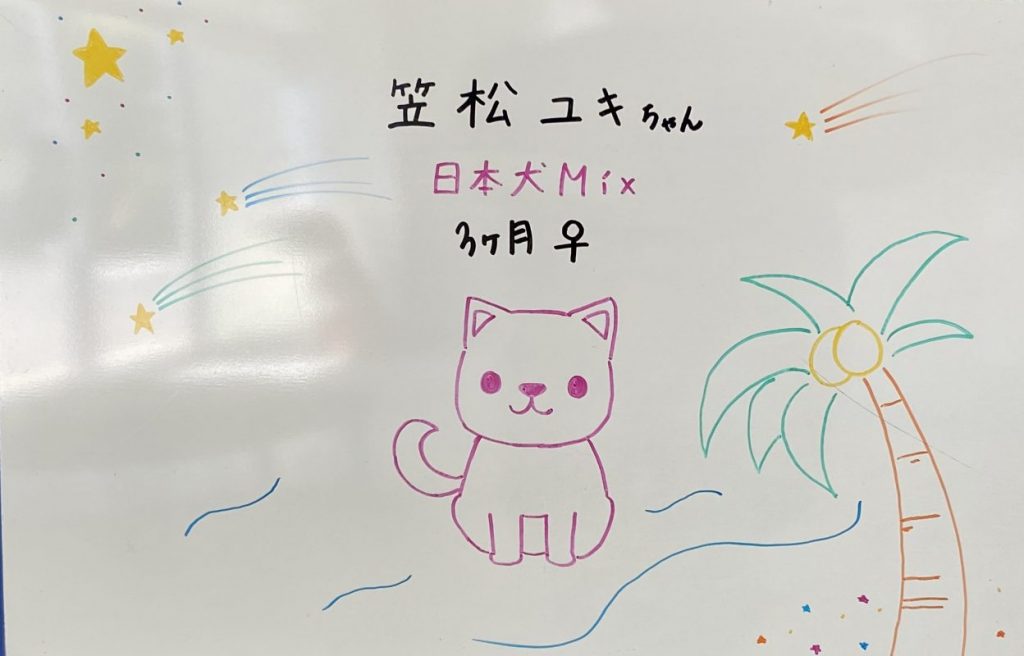 笠松ユキちゃん
日本犬Mix
3ヶ月 ♀